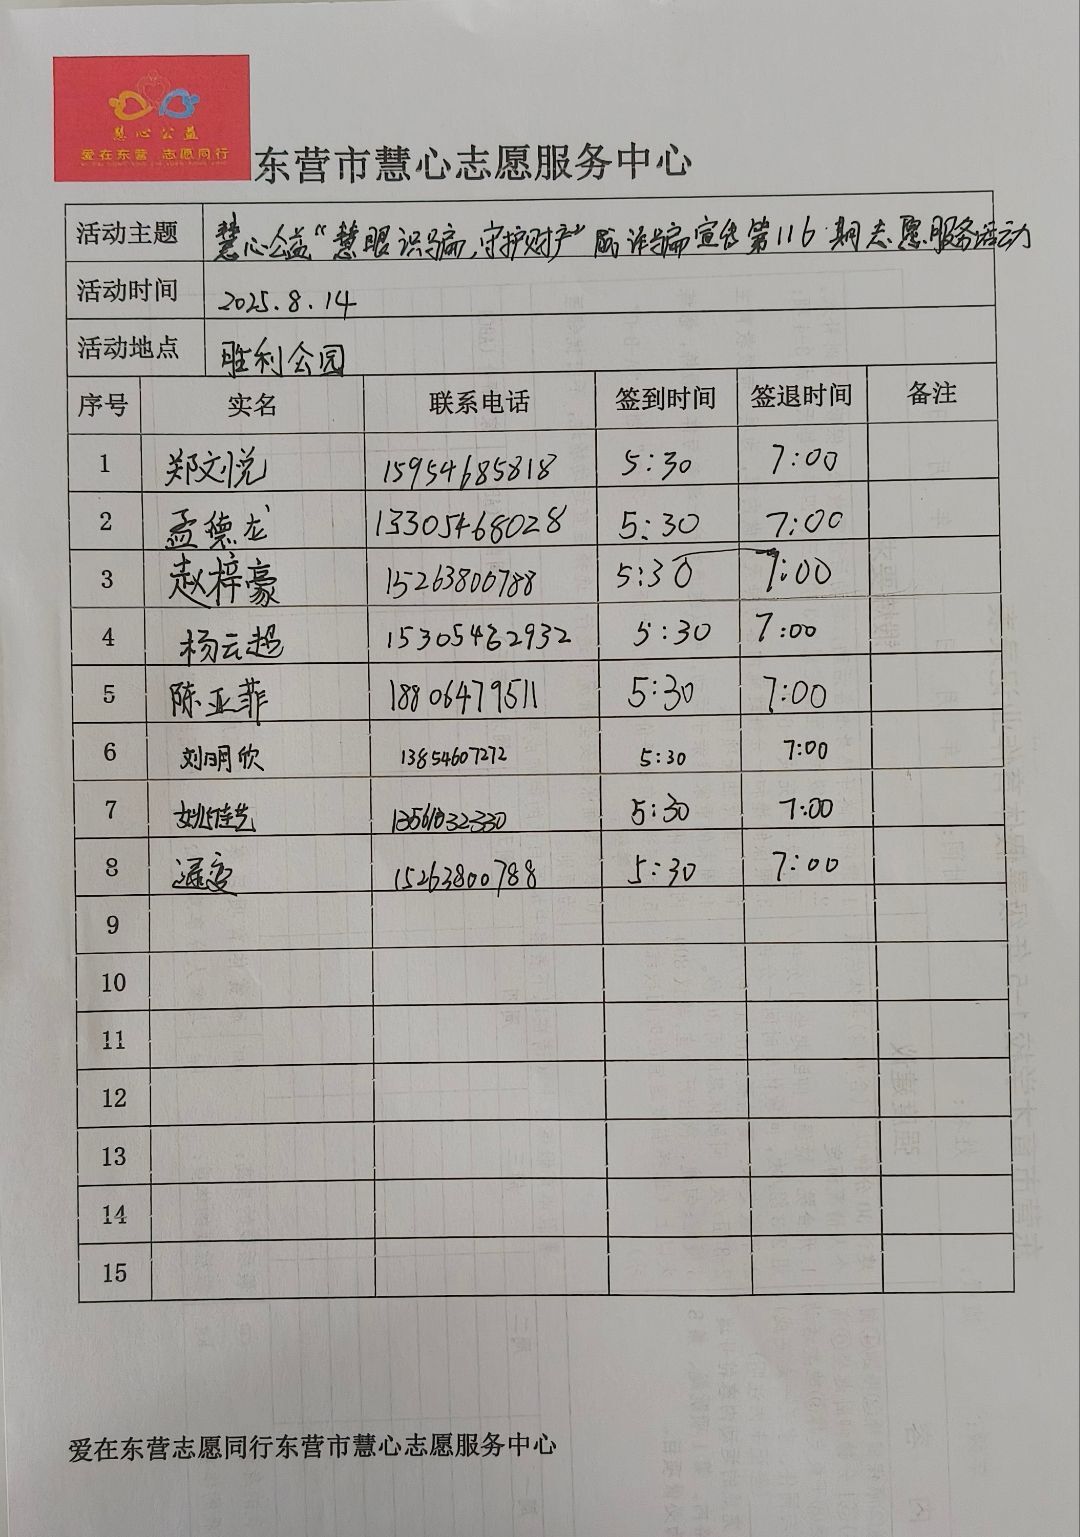 慧心公益
爱在东营 志愿同行
东营市慧心志愿服务中心
活动主题 慧心公益“慧眼识骗,守护财产”防诈骗宣传第116期志愿服务活动
活动时间 2025.8.14
活动地点 胜利公园
序号 实名 联系电话 签到时间 签退时间 备注
1 郑文悦 15954685818 5:30 7:00
2 孟德龙 13305468028 5:30 7:00
3 赵梓豪 15263800788 5:30 7:00
4 杨云超 15305462932 5:30 7:00
5 陈亚菲 18806479511 5:30 7:00
6 刘明欣 13854607272 5:30 7:00
7 5:30 7:00
8 15263800788 5:30 7:00
9
10
11
12
13
14
15
爱在东营志愿同行东营市慧心志愿服务中心